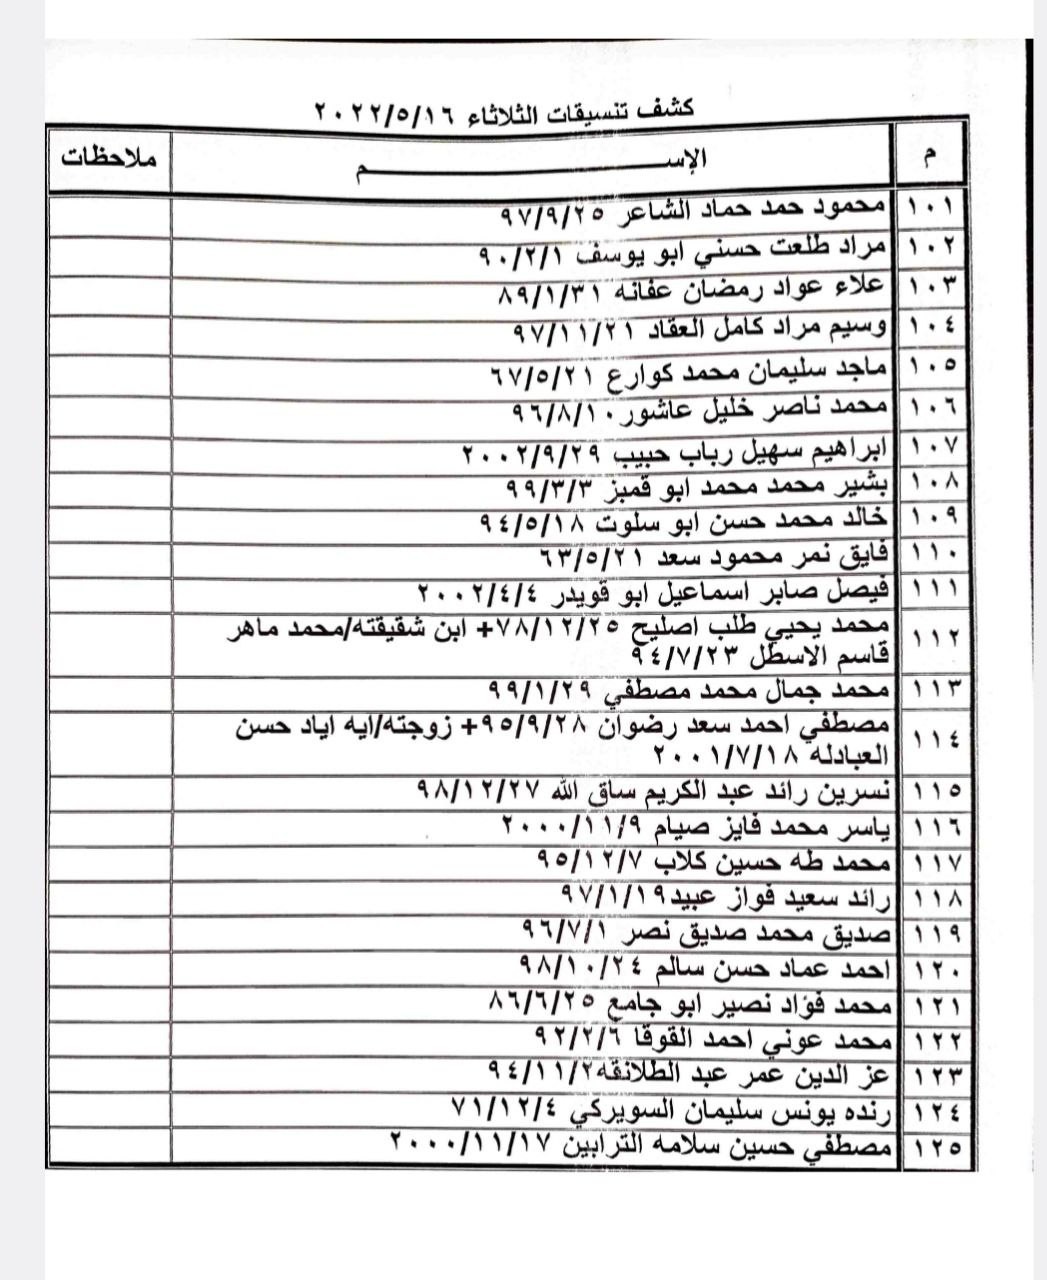 كشف تنسيقات الثلاثاء ٢٠٢٢/٥/١٦
م الإســـــــم ملاحظات
١٠١ محمود حمد حماد الشاعر ٩٧/٩/٢٥
١٠٢ مراد طلعت حسني ابو يوسف ٩٠/٢/١
١٠٣ علاء عواد رمضان عفانه ٨٩/١/٣١
١٠٤ وسيم مراد كامل العقاد ٩٧/١١/٢١
١٠٥ ماجد سليمان محمد كوارع ٦٧/٥/٢١
١٠٦ محمد ناصر خليل عاشور ٩٦/٨/١٠
١٠٧ ابراهيم سهيل رباب حبيب ٢٠٠٢/٩/٢٩
١٠٨ بشير محمد محمد ابو قمبز ٩٩/٣/٣
١٠٩ خالد محمد حسن ابو سلوت ٩٤/٥/١٨
١١٠ فايق نمر محمود سعد ٦٣/٥/٢١
١١١ فيصل صابر اسماعيل ابو قويدر ٢٠٠٢/٤/٤
١١٢ محمد يحيي طلب اصليح ٧٨/١٢/٢٥+ ابن شقيقته/محمد ماهر
قاسم الاسطل ٩٤/٧/٢٣
١١٣ محمد جمال محمد مصطفي ٩٩/١/٢٩
١١٤ مصطفي احمد سعد رضوان ٩٥/٩/٢٨+ زوجته/ايه اياد حسن
العبادله ٢٠٠١/٧/١٨
١١٥ نسرين رائد عبد الكريم ساق الله ٩٨/١٢/٢٧
١١٦ ياسر محمد فايز صيام ٢٠٠٠/١١/٩
١١٧ محمد طه حسين كلاب ٩٥/١٢/٧
١١٨ رائد سعيد فواز عبيد ٩٧/١/١٩
١١٩ صديق محمد صديق نصر ٩٦/٧/١
١٢٠ احمد عماد حسن سالم ٩٨/١٠/٢٤
١٢١ محمد فؤاد نصير ابو جامع ٨٦/٦/٢٥
١٢٢ محمد عوني احمد القوقا ٩٢/٢/٦
١٢٣ عز الدين عمر عبد الطلانقه ٩٤/١١/٢
١٢٤ رنده يونس سليمان السويركي ٧١/١٢/٤
١٢٥ مصطفي حسين سلامه الترابين ٢٠٠٠/١١/١٧